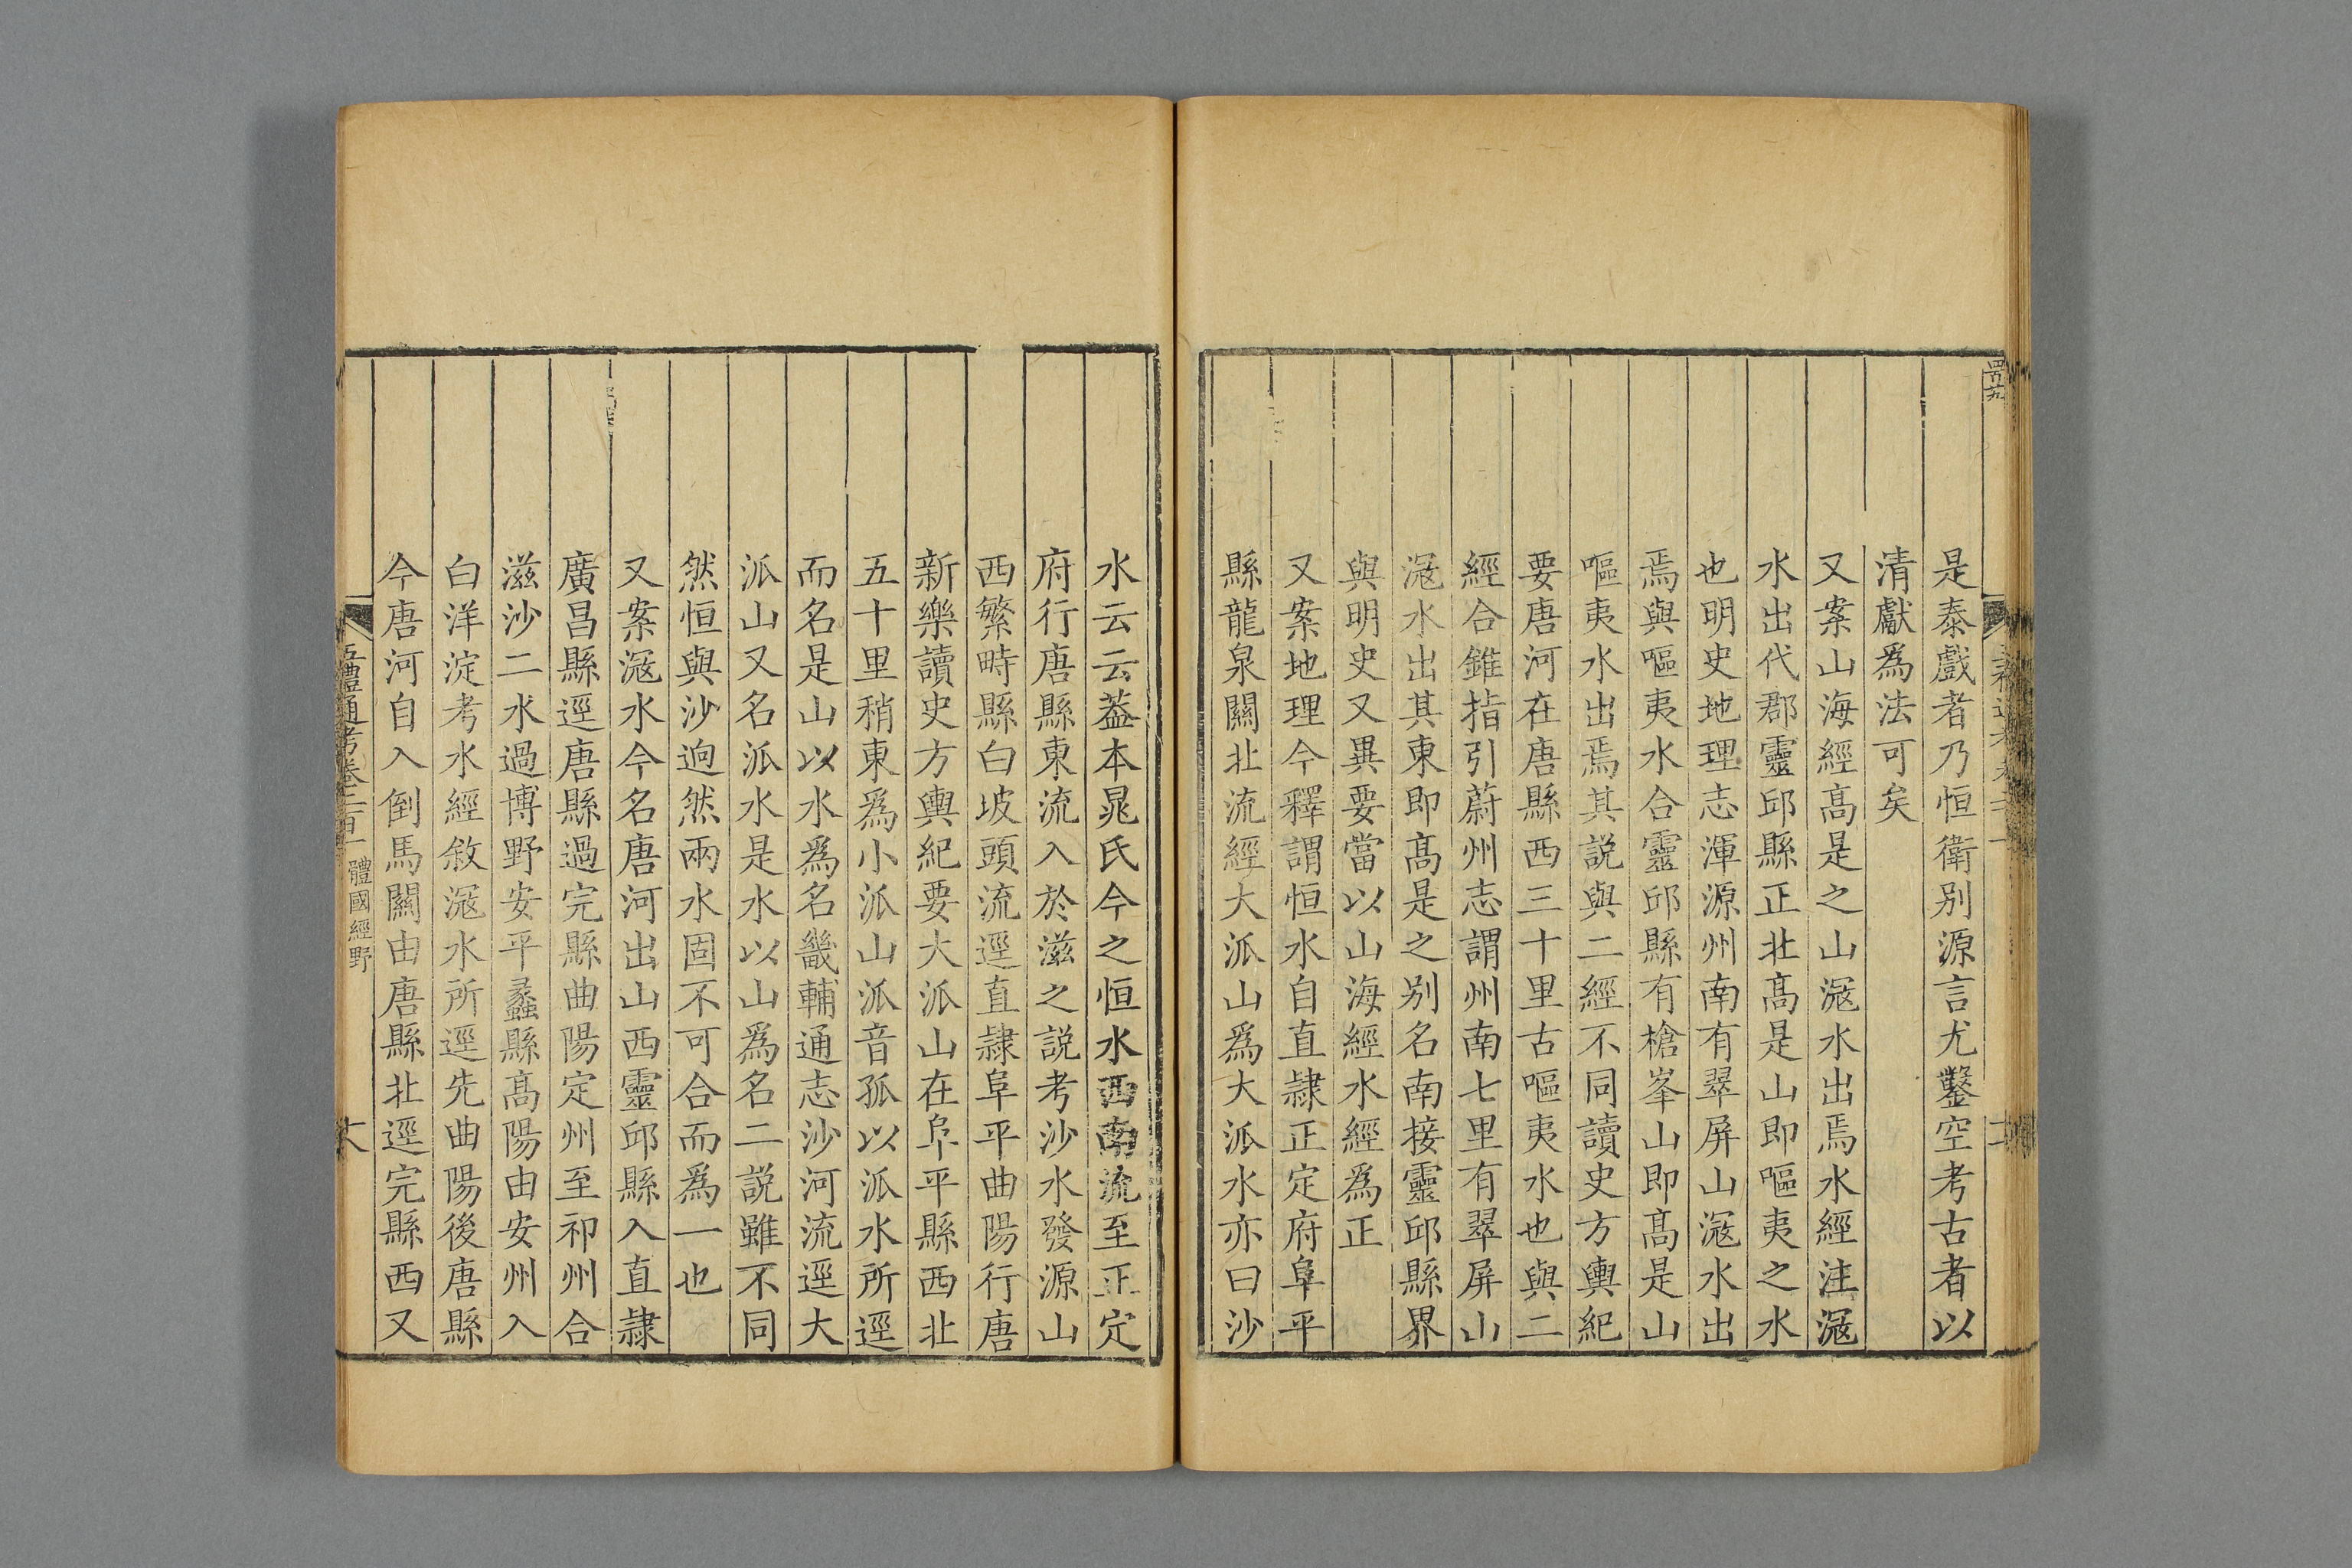 是泰戲者乃恒衛别源言尤鑿空考古者以
清獻爲法可矣
又案山海經高是之山滱水出焉水經注滱
水出代郡靈邱縣正北高是山即嘔夷之水
也明史地理志渾源州南有翠屏山滱水出
焉與嘔夷水合靈邱縣有槍峯山即高是山
嘔夷水出焉其説與二經不同讀史方輿紀
要唐河在唐縣西三十里古嘔夷水也與二
經合錐指引蔚州志謂州南七里有翠屏山
滱水出其東即高是之别名南接靈邱縣界
與明史又異要當以山海經水經爲正
又案地理今釋謂恒水自直隸正定府阜平
縣龍泉關北流經大派山爲大派水亦曰沙
水云云蓋本晁氏今之恒水西南流至正定
府行唐縣東流入於滋之説考沙水發源山
西繁畤縣白坡頭流逕直隸阜平曲陽行唐
新樂讀史方輿紀要大派山在阜平縣西北
五十里稍東爲小派山派音孤以派水所逕
而名是山以水爲名畿輔通志沙河流逕大
派山又名派水是水以山爲名二説雖不同
然恒與沙迥然兩水固不可合而爲一也
又案滱水今名唐河出山西靈邱縣入直隸
廣昌縣逕唐縣過完縣曲陽定州至祁州合
滋沙二水過博野安平蠡縣高陽由安州入
白洋淀考水經敘滱水所逕先曲陽後唐縣
今唐河自入倒馬關由唐縣北逕完縣西又
五禮通考卷二百一 體國經野